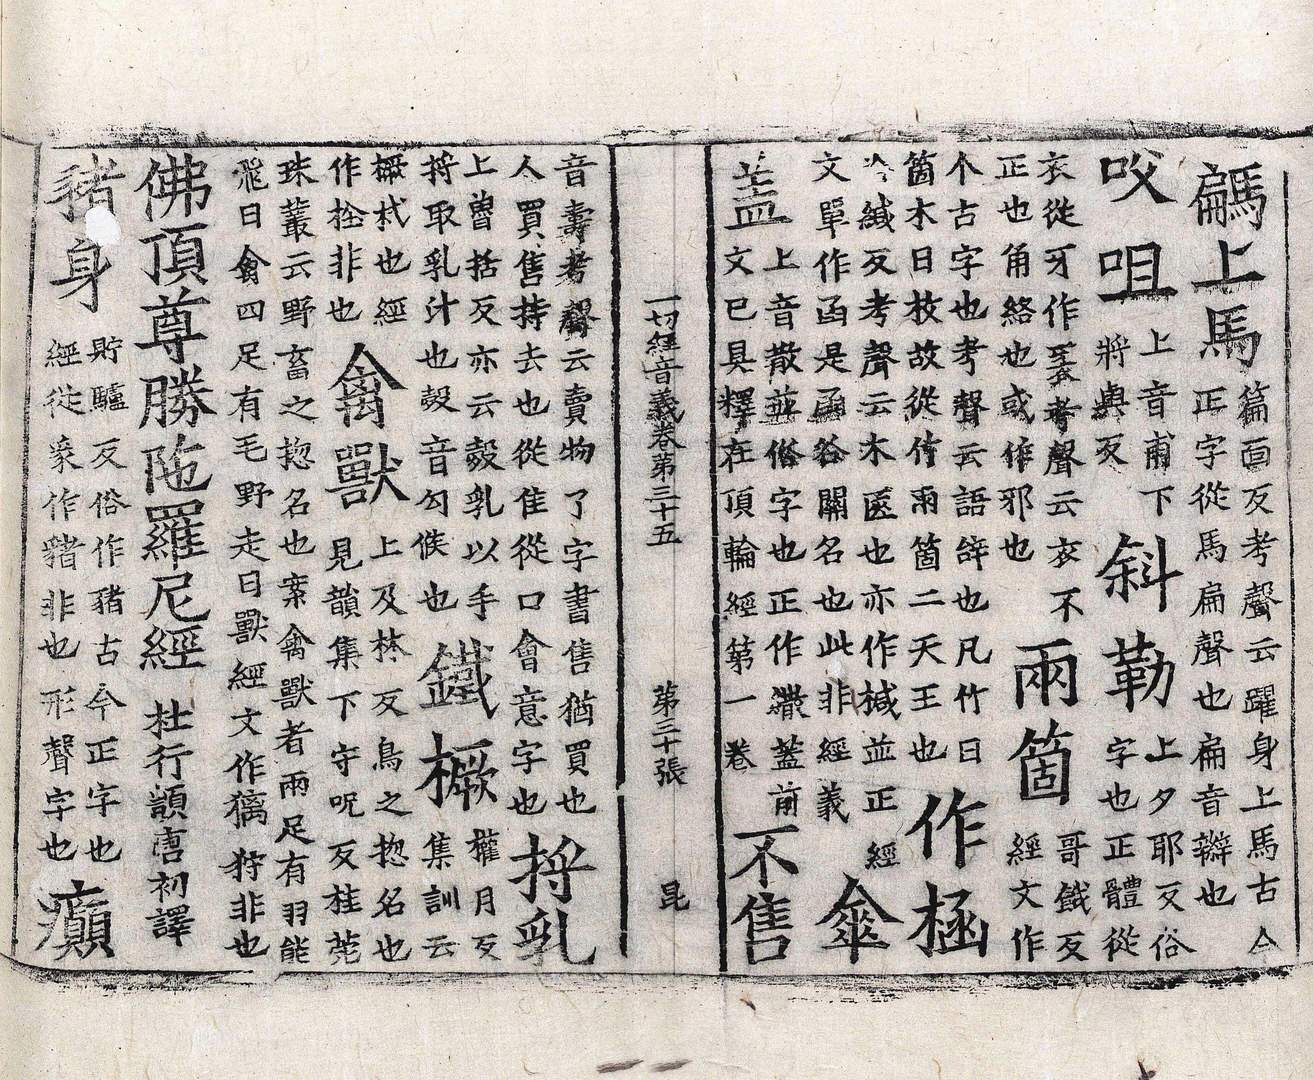 騗上馬 篇面反考聲云躍身上馬古今
正字從馬扁聲也扁音辮也
㕮咀 上音甫下
將與反
斜勒 上夕耶反俗
字也正體從
衣從牙作䘸考聲云衣不
正也角絡也或作邪也
兩箇 哥餓反
經文作
个古字也考聲云語辝也凡竹曰
箇木曰枚故從竹兩箇二天王也
作椷
洽緘反考聲云木匧也亦作椷並正經
文單作函是函谷關名也此非經義
傘
蓋 上音散並俗字也正作繖蓋前
文已具釋在頂輪經第一卷
不售
一切經音義卷第三十五 第三十張 昆
音壽考聲云賣物了字書售猶買也
人買售持去也從隹從口會意字也
捋乳
上曽括反亦云㝅乳以手
捋取乳汁也㝅音勾候也
鐵橛 權月反
集訓云
橛杙也經
作栓非也
禽獸 上及林反鳥之揔名也
見韻集下守呪反桂菀
珠叢云野畜之揔名也案禽獸者兩足有羽能
飛曰禽四足有毛野走曰獸經文作㺍狩非也
佛頂尊勝陁羅尼經 杜行顗唐初譯
豬身 貯驢反俗作猪古今正字也
經從豕作豬非也形聲字也
癲